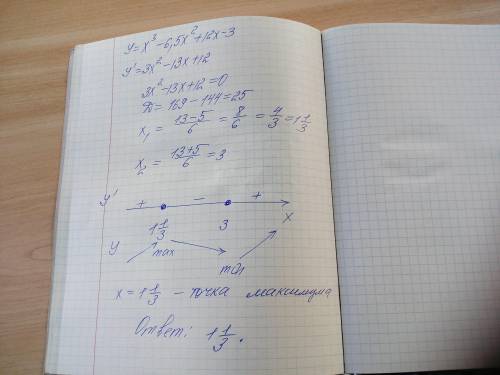 y = x³ - 6,5x² + 12x - 3
y' = 3x² - 13x + 12
3x² - 13x + 12 = 0
D = 169 - 144 = 25
x₁ = (13-5)/6 = 8/6 = 4/3 = 1 1/3
x₂ = (13+5)/6 = 3
y' + - +
1 1/3 3 x
y max min
x = 1 1/3 - точка максимума
Ответ: 1 1/3.